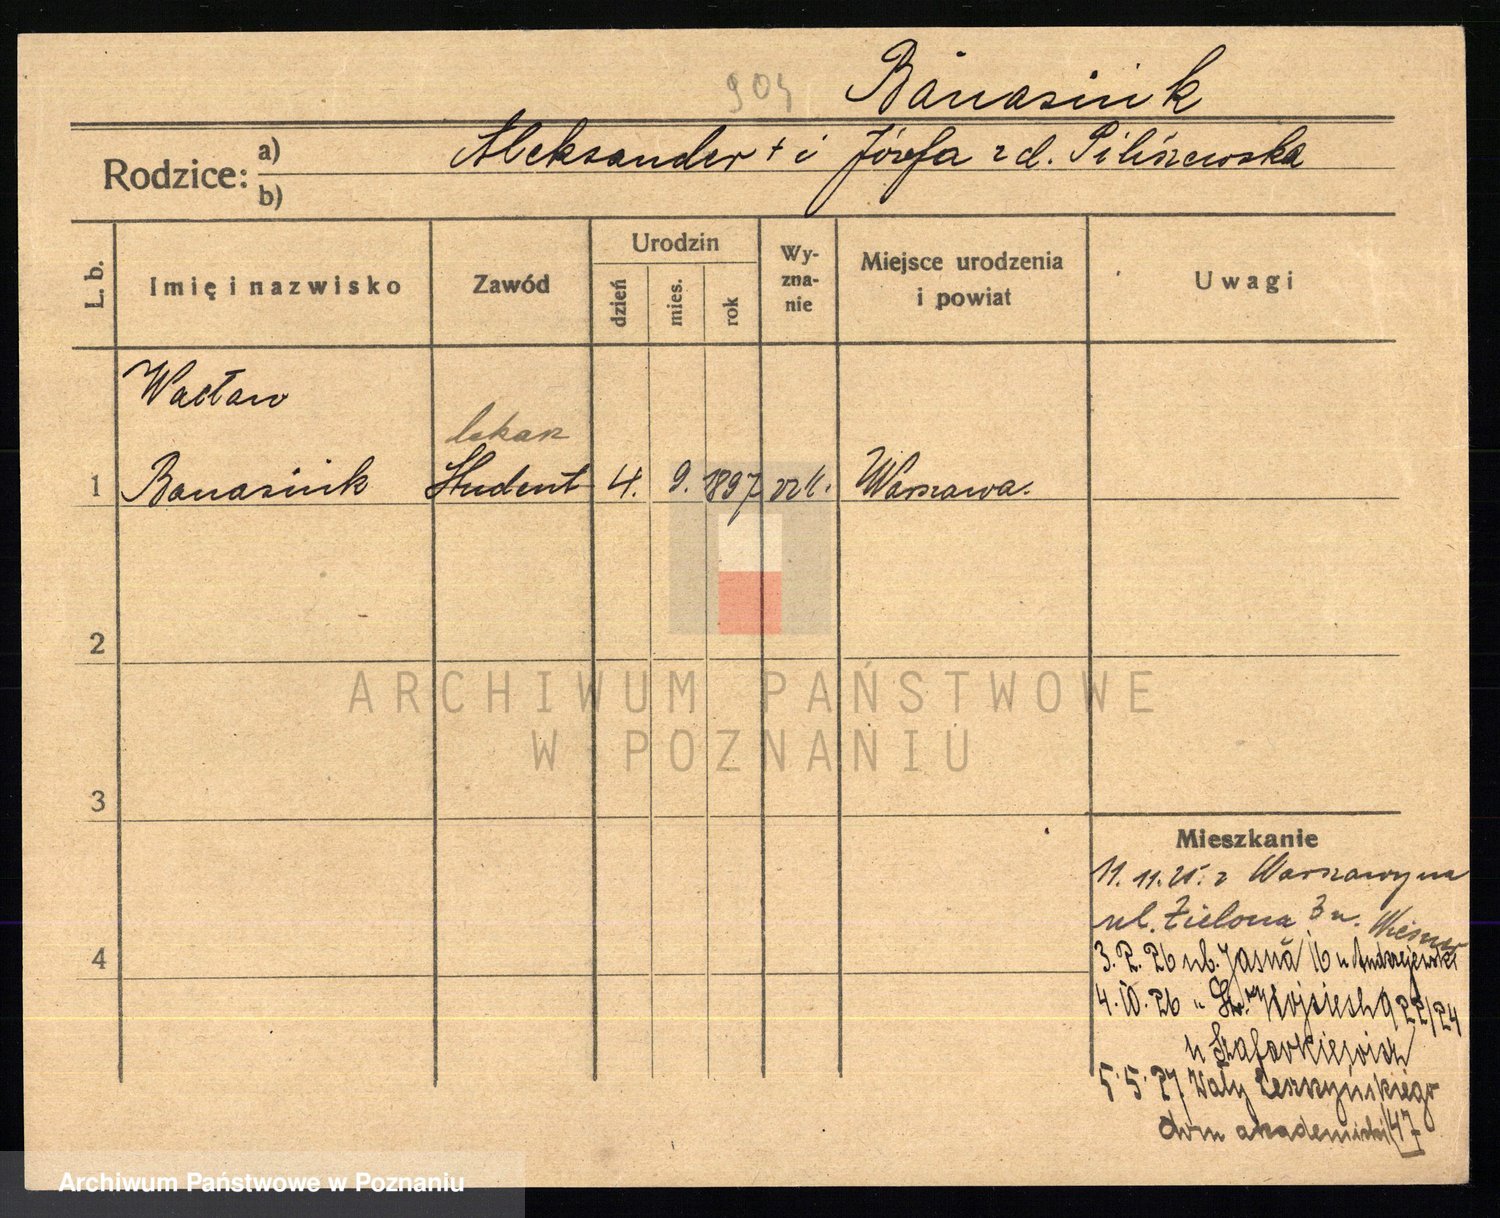 904 Banasiuk
Rodzice: a) Aleksander + i Józefa z d. Piliszewska
b)
L. b. Imię i nazwisko Zawód Urodzin dzień mies. rok Wy-zna-nie Miejsce urodzenia i powiat Uwagi
Wacław
lekarz
1 Banasiuk Student 4. 9. 1897 rzk. Warszawa.
2
ARCHIWUM PAŃSTWOWE
W POZNANIU
3
Mieszkanie
11. 11. 25. z Warszawy na
ul. Zielona 3 u.
4
3. 2. 26 ul. Jasna 16 u Andrzejewski
4. 10. 26 " Św. Wojciech 22/24
u Szafarkiewicz
5. 5. 27 Wały Leszczyńskiego
dom akademicki 47
Archiwum Państwowe w Poznaniu